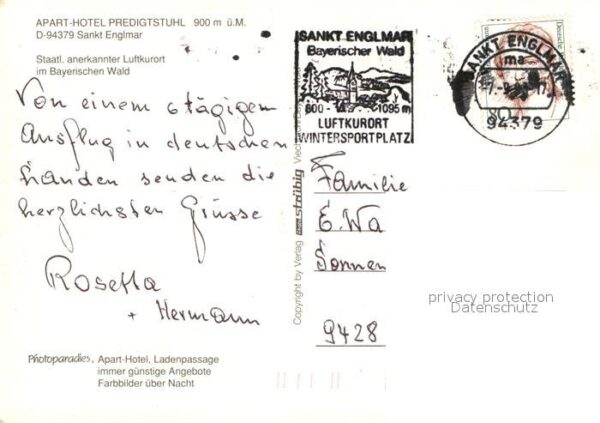 APART-HOTEL PREDIGTSTUHL 900 m ü.M.
D-94379 Sankt Englmar
Staatl. anerkannter Luftkurort
im Bayerischen Wald
Von einem 6tägigem
Ausflug in deutschen
Landen senden die
herzlichsten Grüsse
Rosetta
+ Hermann
Photoparadies, Apart-Hotel, Ladenpassage
immer günstige Angebote
Farbbilder über Nacht
Copyright by Verlag strübig
SANKT ENGLMAR
Bayerischer Wald
800 - 1095 m
LUFTKURORT
WINTERSPORTPLATZ
SANKT ENGLMAR
ma
94379
Familie
E. Wa
Sonnen
9428
privacy protection
Datenschutz